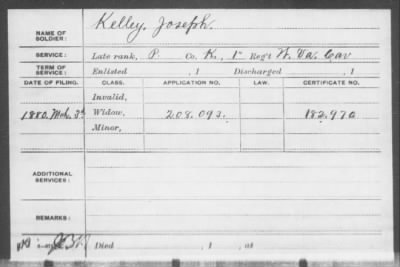 NAME OF SOLDIER: Kelley, Joseph.
SERVICE: Late rank, P. Co. K., 1st Reg't W. Va. Cav
TERM OF SERVICE: Enlisted , 1 Discharged , 1
DATE OF FILING. CLASS. APPLICATION NO. LAW. CERTIFICATE NO.
Invalid,
1880. Mch. 3d. Widow, 208.093. 182.970
Minor,
ADDITIONAL SERVICES:
REMARKS:
Died , 1 , at